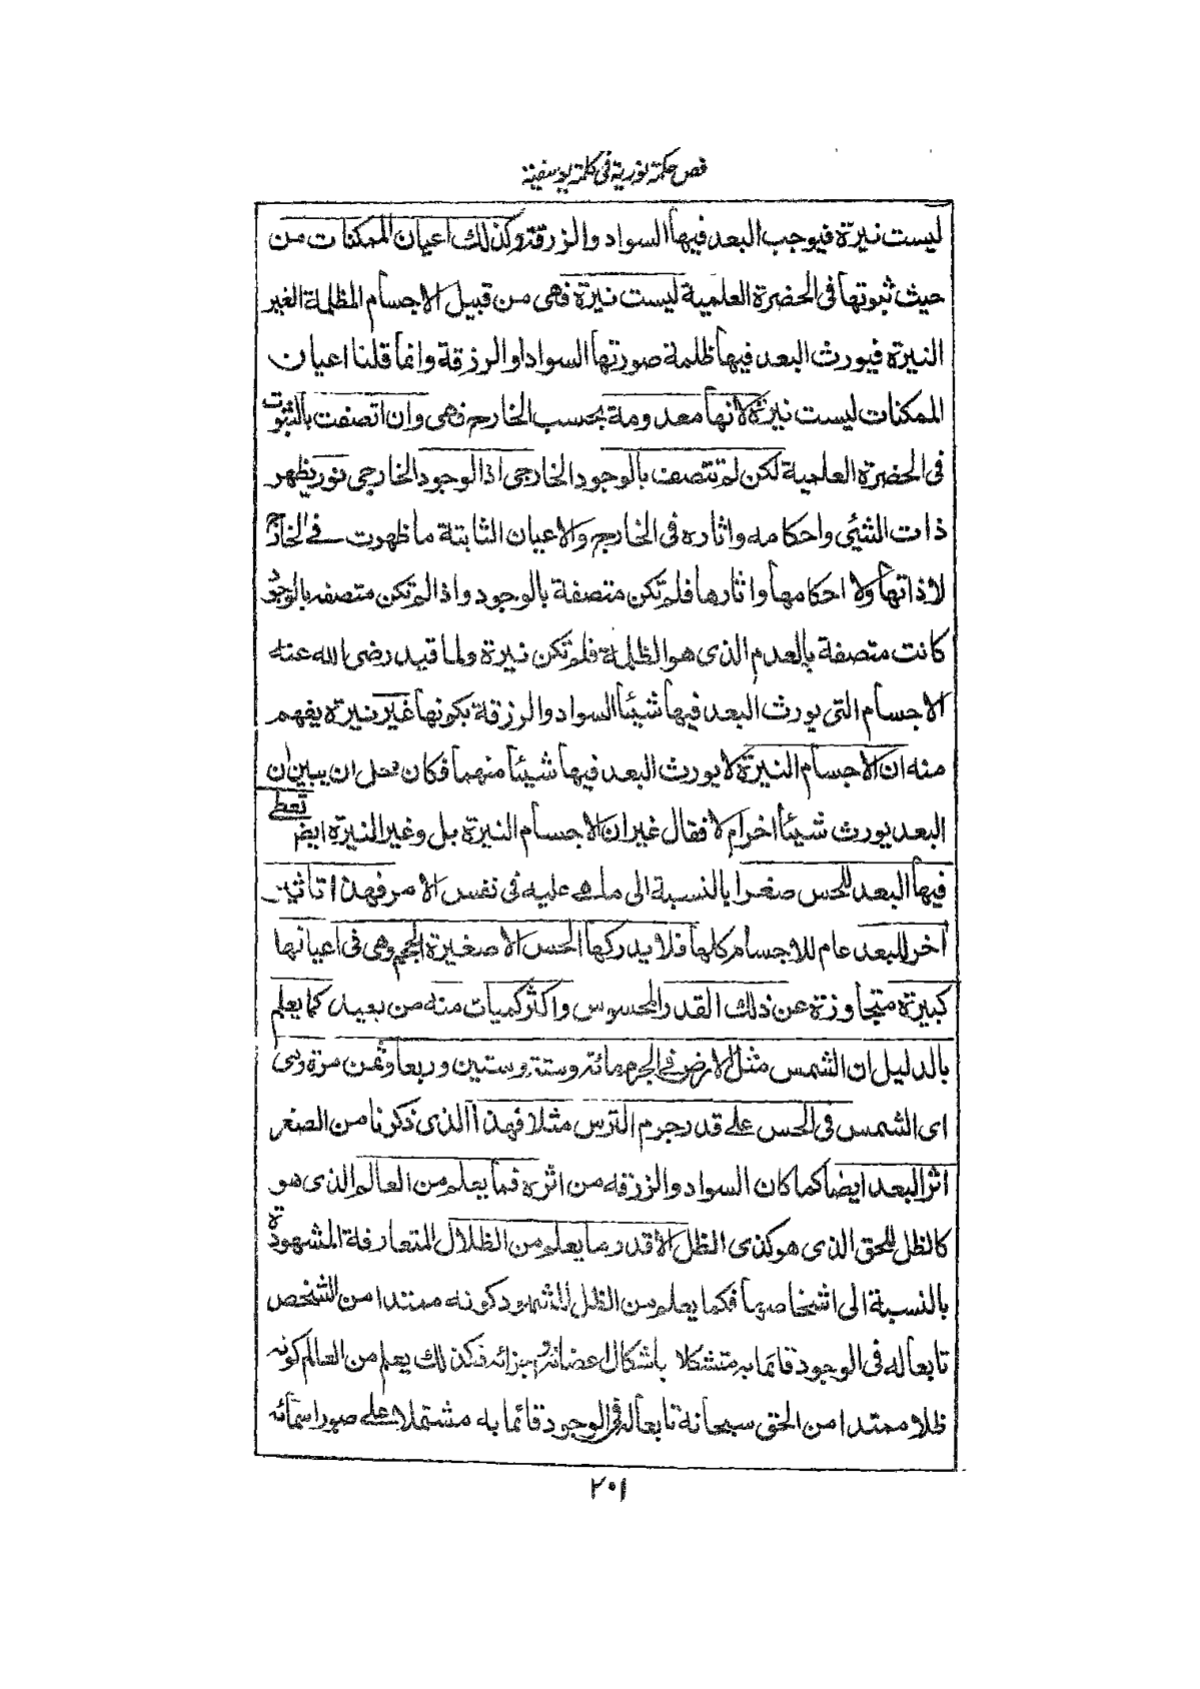 فص حكمة نورية فى كلمة يوسفية
ليست نيرة فيوجب البعد فيها السواد والزرقة وكذلك اعيان الممكنات من
حيث ثبوتها فى الحضرة العلمية ليست نيرة فهى من قبيل الاجسام المظلمة الغير
النيرة فيورث البعد فيها ظلمة صورتها السواد او الرزقة وانما قلنا اعيان
الممكنات ليست نيرة لانها معدومة بحسب الخارج فهى وان اتصفت بالثبوت
فى الحضرة العلمية لكن لم تتصف بالوجود الخارجى اذ الوجود الخارجى نور يظهر
ذات الشئى واحكامه واثاره فى الخارج والاعيان الثابتة ما ظهرت فى الخارج
لا ذاتها ولا احكامها واثارها فلم تكن متصفة بالوجود واذا لم تكن متصفه بالوجود
كانت متصفة بالعدم الذى هو الظلمة فلم تكن نيرة ولما قيد رضى الله عنه
الاجسام التى يورث البعد فيها شيئا السواد والرزقة بكونها غير نيرة يفهم
منه ان الاجسام النيرة لا يورث البعد فيها شيئا منهما فكان محل ان يبين ان
البعد يورث شيئا اخر ام لا فقال غير ان الاجسام النيرة بل وغير النيرة ايض تعطى
فيها البعد للحس صغرا بالنسبة الى ما هى عليه فى نفس الامر فهذا تاثير
اخر للبعد عام للاجسام كلها فلا يدركها الحس الا صغيرة الحجم وهى فى اعيانها
كبيرة متجاوزة عن ذلك القدر المحسوس واكثر كميات منه من بعيد كما يعلم
بالدليل ان الشمس مثل الارض فى الجرم مائة وستة وستين وربعا وثمن مرة وهى
اى الشمس فى الحس على قدر جرم الترس مثلا فهذا الذى ذكرنا من الصغر
اثر البعد ايضا كما كان السواد والزرقه من اثره فما يعلم من العالم الذى هو
كالظل للحق الذى هو كذى الظل الا قدر ما يعلم من الظلال المتعارفة المشهودة
بالنسبة الى اشخاصها فكما يعلم من الظل المشهود كونه ممتدا من الشخص
تابعا له فى الوجود قائما به متشكلا باشكال اعضائه واجزائه فكذلك يعلم من العالم كونه
ظلا ممتدا من الحق سبحانة تابعا له فى الوجود قائما به مشتملا على صور اسمائه
٢٠١